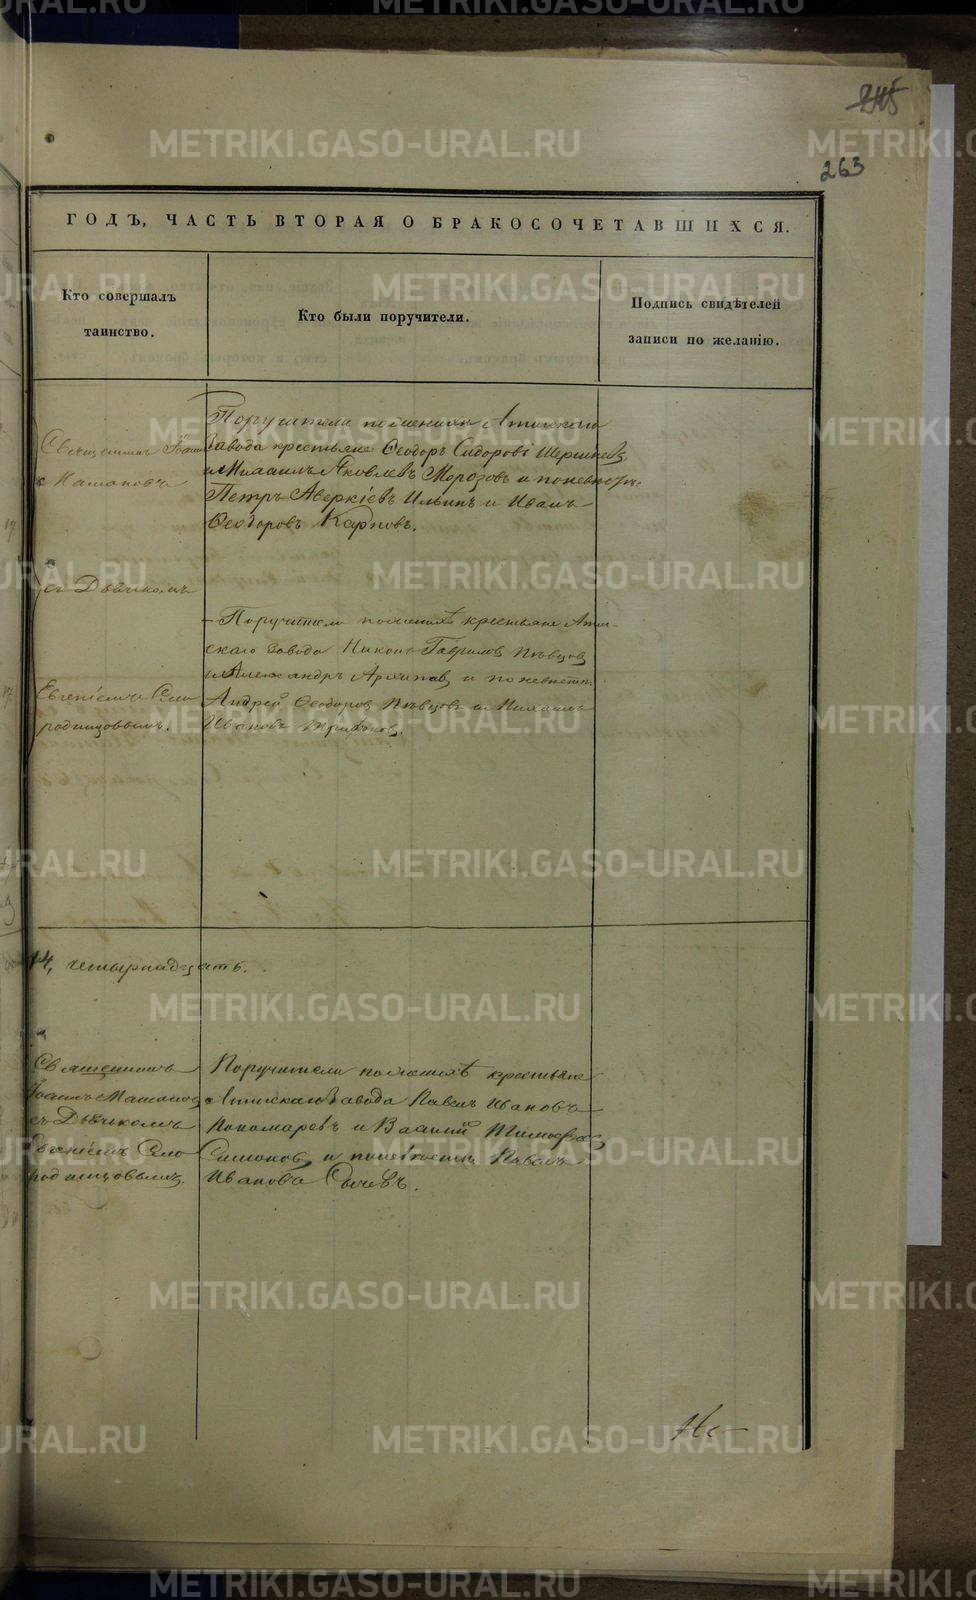 245
263
ГОДЪ, ЧАСТЬ ВТОРАЯ О БРАКОСОЧЕТАВШИХСЯ.
Кто совершалъ
таинство.
Кто были поручители.
Подпись свидѣтелей
записи по желанію.
Священникъ Іоаннъ
съ Дьячкомъ
Евгеніемъ Смо
родинцовымъ.
Поручители по женихѣ Атигскаго
Завода крестьяне Ѳеодоръ Сидоровъ
и Михаилъ Яковлевъ Морозовъ и по невѣстѣ
Петръ Аверкіевъ Ильинъ и Иванъ
Ѳеодоровъ Карповъ.
Поручители по женихѣ крестьяне Атиг-
скаго Завода Никонъ Гавриловъ Пѣвцовъ
и Александръ Архиповъ и по невѣстѣ
Андрей Ѳеодоровъ Пѣвцовъ и Михаилъ
Ивановъ
14, четырнадцать.
Священникъ
Іоаннъ
съ Дьячкомъ
Евгеніемъ Смо
родинцовымъ.
Поручители по женихѣ крестьяне
Атигскаго Завода Павелъ Ивановъ
Пономаревъ и Василій Тимофѣевъ
и по невѣстѣ Павелъ
Ивановъ Сычевъ.
METRIKI.GASO-URAL.RU